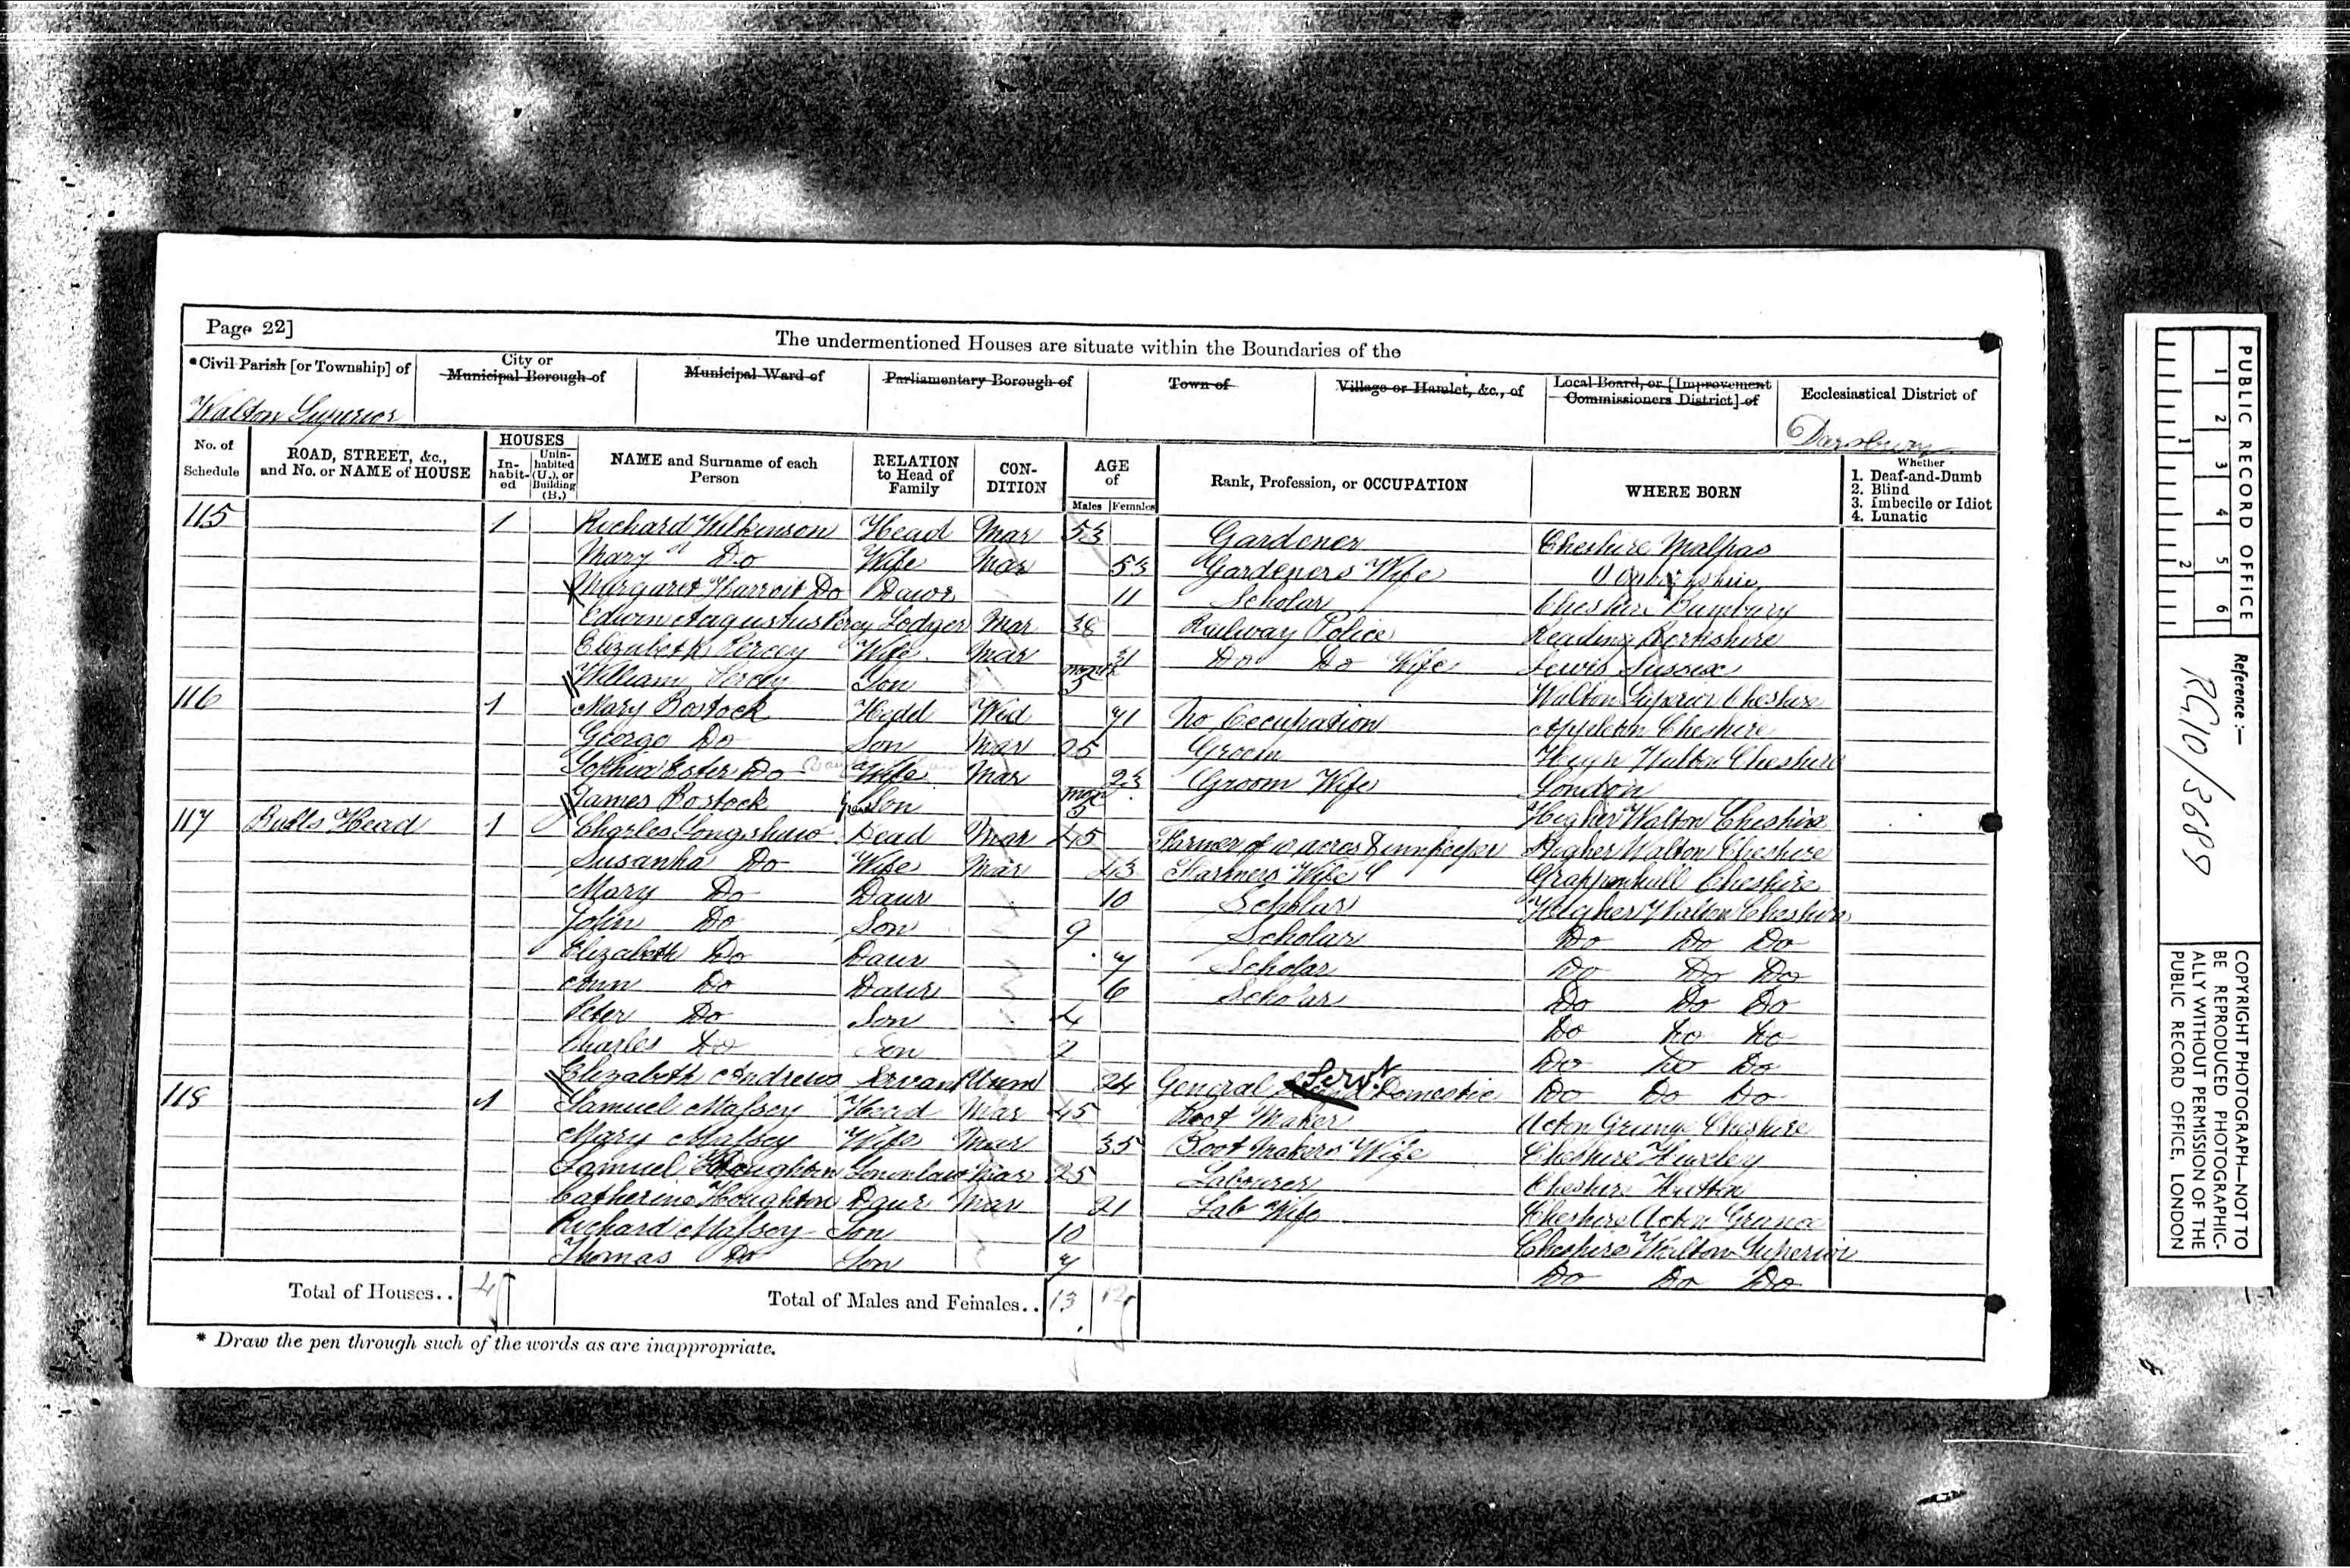 Page 22]
The undermentioned Houses are situate within the Boundaries of the
*Civil Parish [or Township] of
City or Municipal Borough of
Municipal Ward of
Parliamentary Borough of
Town of
Village or Hamlet, &c., of
Local Board, or [Improvement Commissioners District] of
Ecclesiastical District of
Walton Superior
Daresbury
No. of Schedule
ROAD, STREET, &c., and No. or NAME of HOUSE
HOUSES
In-habit-ed
Unin-habited (U.), or Building (B.)
NAME and Surname of each Person
RELATION to Head of Family
CON-DITION
AGE of
Males
Females
Rank, Profession, or OCCUPATION
WHERE BORN
Whether
1. Deaf-and-Dumb
2. Blind
3. Imbecile or Idiot
4. Lunatic
115 1 Richard Wilkinson Head Mar 53 Gardener Cheshire Malpas
Mary Do Wife Mar 53 Gardeners Wife
Margaret Harroit Do Dawr 11 Scholar Cheshire Bunbury
Edwin Augustus Percy Lodger Mar 38 Railway Police Reading Berkshire
Elizabeth Percey Wife Mar 31 Do Do Wife Lewis Sussex
William Percy Son 3 Walton Superior Cheshire
116 1 Mary Bostock Head Wid 71 No Occupation Appleton Cheshire
George Do Son Mar 25 Groom Heigh Walton Cheshire
Sophia Ester Do Wife Mar 23 Groom Wife London
James Bostock Grand Son 3 Higher Walton Cheshire
117 Bulls Head 1 Charles Longshaw Head Mar 45 Farmer of 10 acres & innkeeper Higher Walton Cheshire
Susanha Do Wife Mar 43 Farmers Wife Grappenhall Cheshire
Mary Do Daur 10 Scholar Higher Walton Cheshire
John Do Son 9 Scholar Do Do Do
Elizabeth Do Daur 7 Scholar Do Do Do
Ann Do Daur 6 Scholar Do Do Do
Peter Do Son 4 Do Do Do
Charles Do Son 2 Do Do Do
Elizabeth Andrews Servant Unm 24 General Servt Domestic Do Do Do
118 1 Samuel Massey Head Mar 45 Boot Maker Acton Grange Cheshire
Mary Massey Wife Mar 35 Boot Makers Wife Cheshire Huxley
Samuel Houghton Soninlaw Mar 25 Labourer Cheshire Hatton
Catherine Houghton Daur Mar 21 Lab Wife Cheshire Acton Grange
Richard Massey Son 10 Cheshire Walton Superior
Thomas Do Son 7 Do Do Do
Total of Houses.. 4
Total of Males and Females.. 13 12
* Draw the pen through such of the words as are inappropriate.
PUBLIC RECORD OFFICE
1 2 3 4 5 6
1 2
Reference:—
RG10/3689
COPYRIGHT PHOTOGRAPH—NOT TO
BE REPRODUCED PHOTOGRAPHIC-
ALLY WITHOUT PERMISSION OF THE
PUBLIC RECORD OFFICE, LONDON